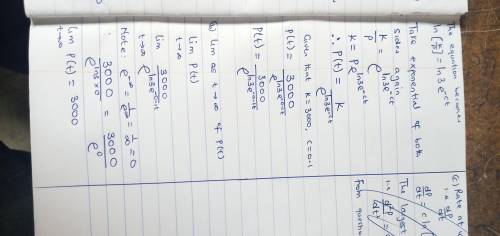 The equation becomes
ln[k/P] = ln3 e^-ct
Take exponential of both
sides again
k/P = e^ln3e^-ct
k = P e^ln3e^-ct
∴ P(t) = k/e^ln3e^-ct
Given that k = 3000, c = 0.1
P(t) = 3000/e^ln3e^-0.1t
P(t) = 3000/e^ln3e^-0.1t
lim as t→∞ of P(t)
lim P(t)
t→∞
lim 3000/e^ln3e^-0.1t
t→∞
Note: e^-∞ = 1/e^∞ = 1/∞ = 0
3000/e^ln3×0 = 3000/e^0
lim P(t) = 3000
t→∞
(c) Rate at
i.e dP/dt
dP/dt = c ln
The largest
i.e d²P/dt²
from